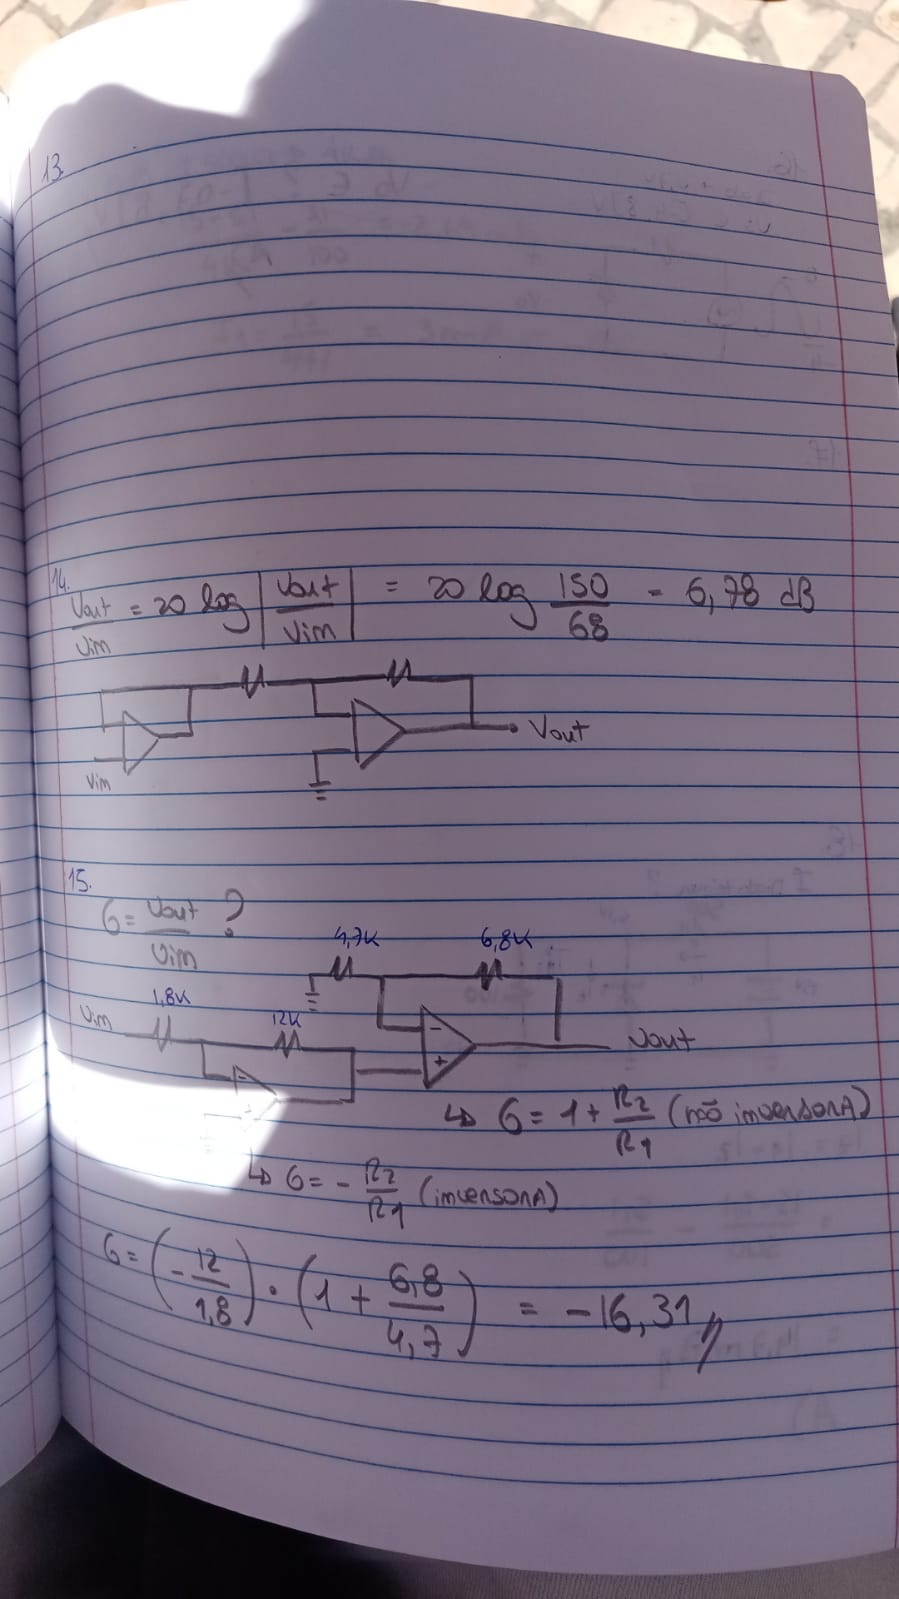 13.
14.
Vout/Vin = 20 log |Vout/Vin| = 20 log 150/68 = 6,78 dB
Vout
Vin
15.
G = Vout/Vin ?
4,7K 6,8K
1,8K
Vin 12K
-
+
Vout
-
+
↳ G = 1 + R2/R1 (não inversora)
↳ G = - R2/R1 (inversora)
G = (- 12/1,8) · (1 + 6,8/4,7) = -16,31